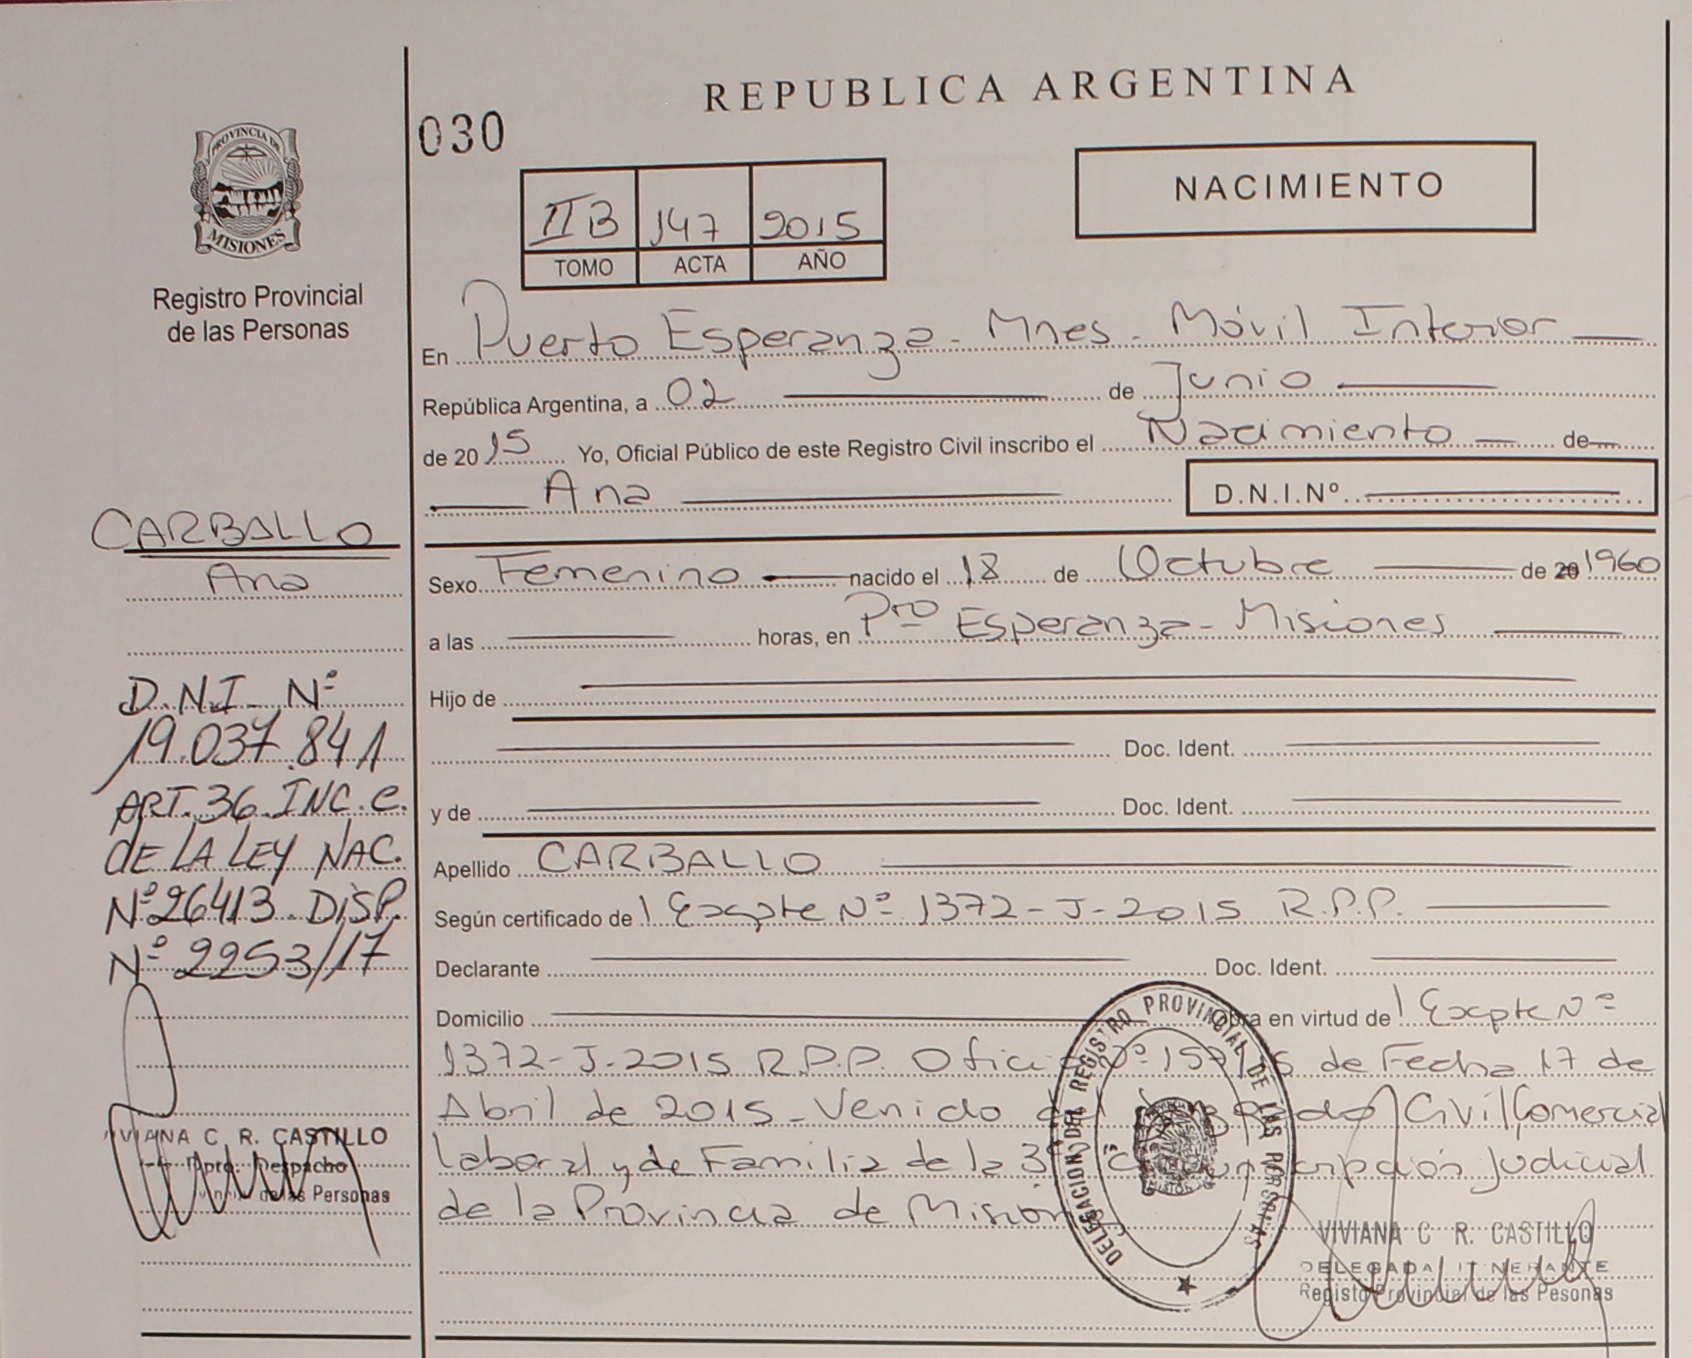 REPUBLICA ARGENTINA
030
PROVINCIA DE
MISIONES
Registro Provincial
de las Personas
IIB 147 2015
TOMO ACTA AÑO
NACIMIENTO
En Puerto Esperanza - Mnes - Móvil Interior
República Argentina, a 02 de Junio
de 2015 Yo, Oficial Público de este Registro Civil inscribo el Nacimiento de
Ana D.N.I.Nº
Sexo Femenino nacido el 18 de Octubre de 20 1960
a las horas, en Pto Esperanza - Misiones
Hijo de
Doc. Ident.
y de Doc. Ident.
Apellido CARBALLO
Según certificado de 1 Expte Nº 1372-J-2015 R.P.P.
Declarante Doc. Ident.
Domicilio Obra en virtud de 1 Expte Nº
1372-J-2015 R.P.P. Oficio Nº de Fecha 17 de
Abril de 2015 - Venido del Juzgado Civil Comercial
Laboral y de Familia de la 3º Circunscripción Judicial
de la Provincia de Misiones
CARBALLO
Ana
D.N.I. Nº
19.037.841
ART. 36 INC. C.
DE LA LEY NAC.
Nº 26413 DISP.
Nº 2253/17
VIVIANA C. R. CASTILLO
Dpto. Despacho
de las Personas
DELEGACION DEL REGISTRO PROVINCIAL DE LAS PERSONAS
VIVIANA C R. CASTILLO
DELEGADA ITINERANTE
Registo Provincial de las Pesonas